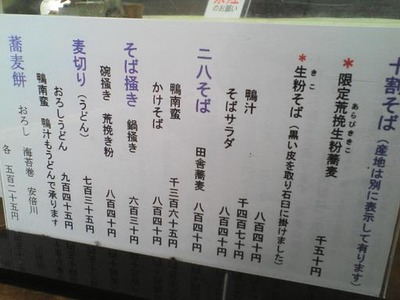 のお願い
十割そば(産地は別に表示して有ります)
あらびききこ
*限定荒挽生粉蕎麦 千五十円
きこ
*生粉そば(黒い皮を取り石臼に掛けました)
八百四十円
鴨汁 千四百七十円
そばサラダ 八百四十円
二八そば 田舎蕎麦 八百四十円
鴨南蛮 千三百六十五円
かけそば 八百四十円
そば掻き 鍋掻き 六百三十円
碗掻き 荒挽き粉 八百四十円
麦切り(うどん) 七百三十五円
おろしうどん 九百四十五円
鴨南蛮 鴨汁もうどんで承ります
蕎麦餅 おろし 海苔巻 安倍川
各 五百二十五円